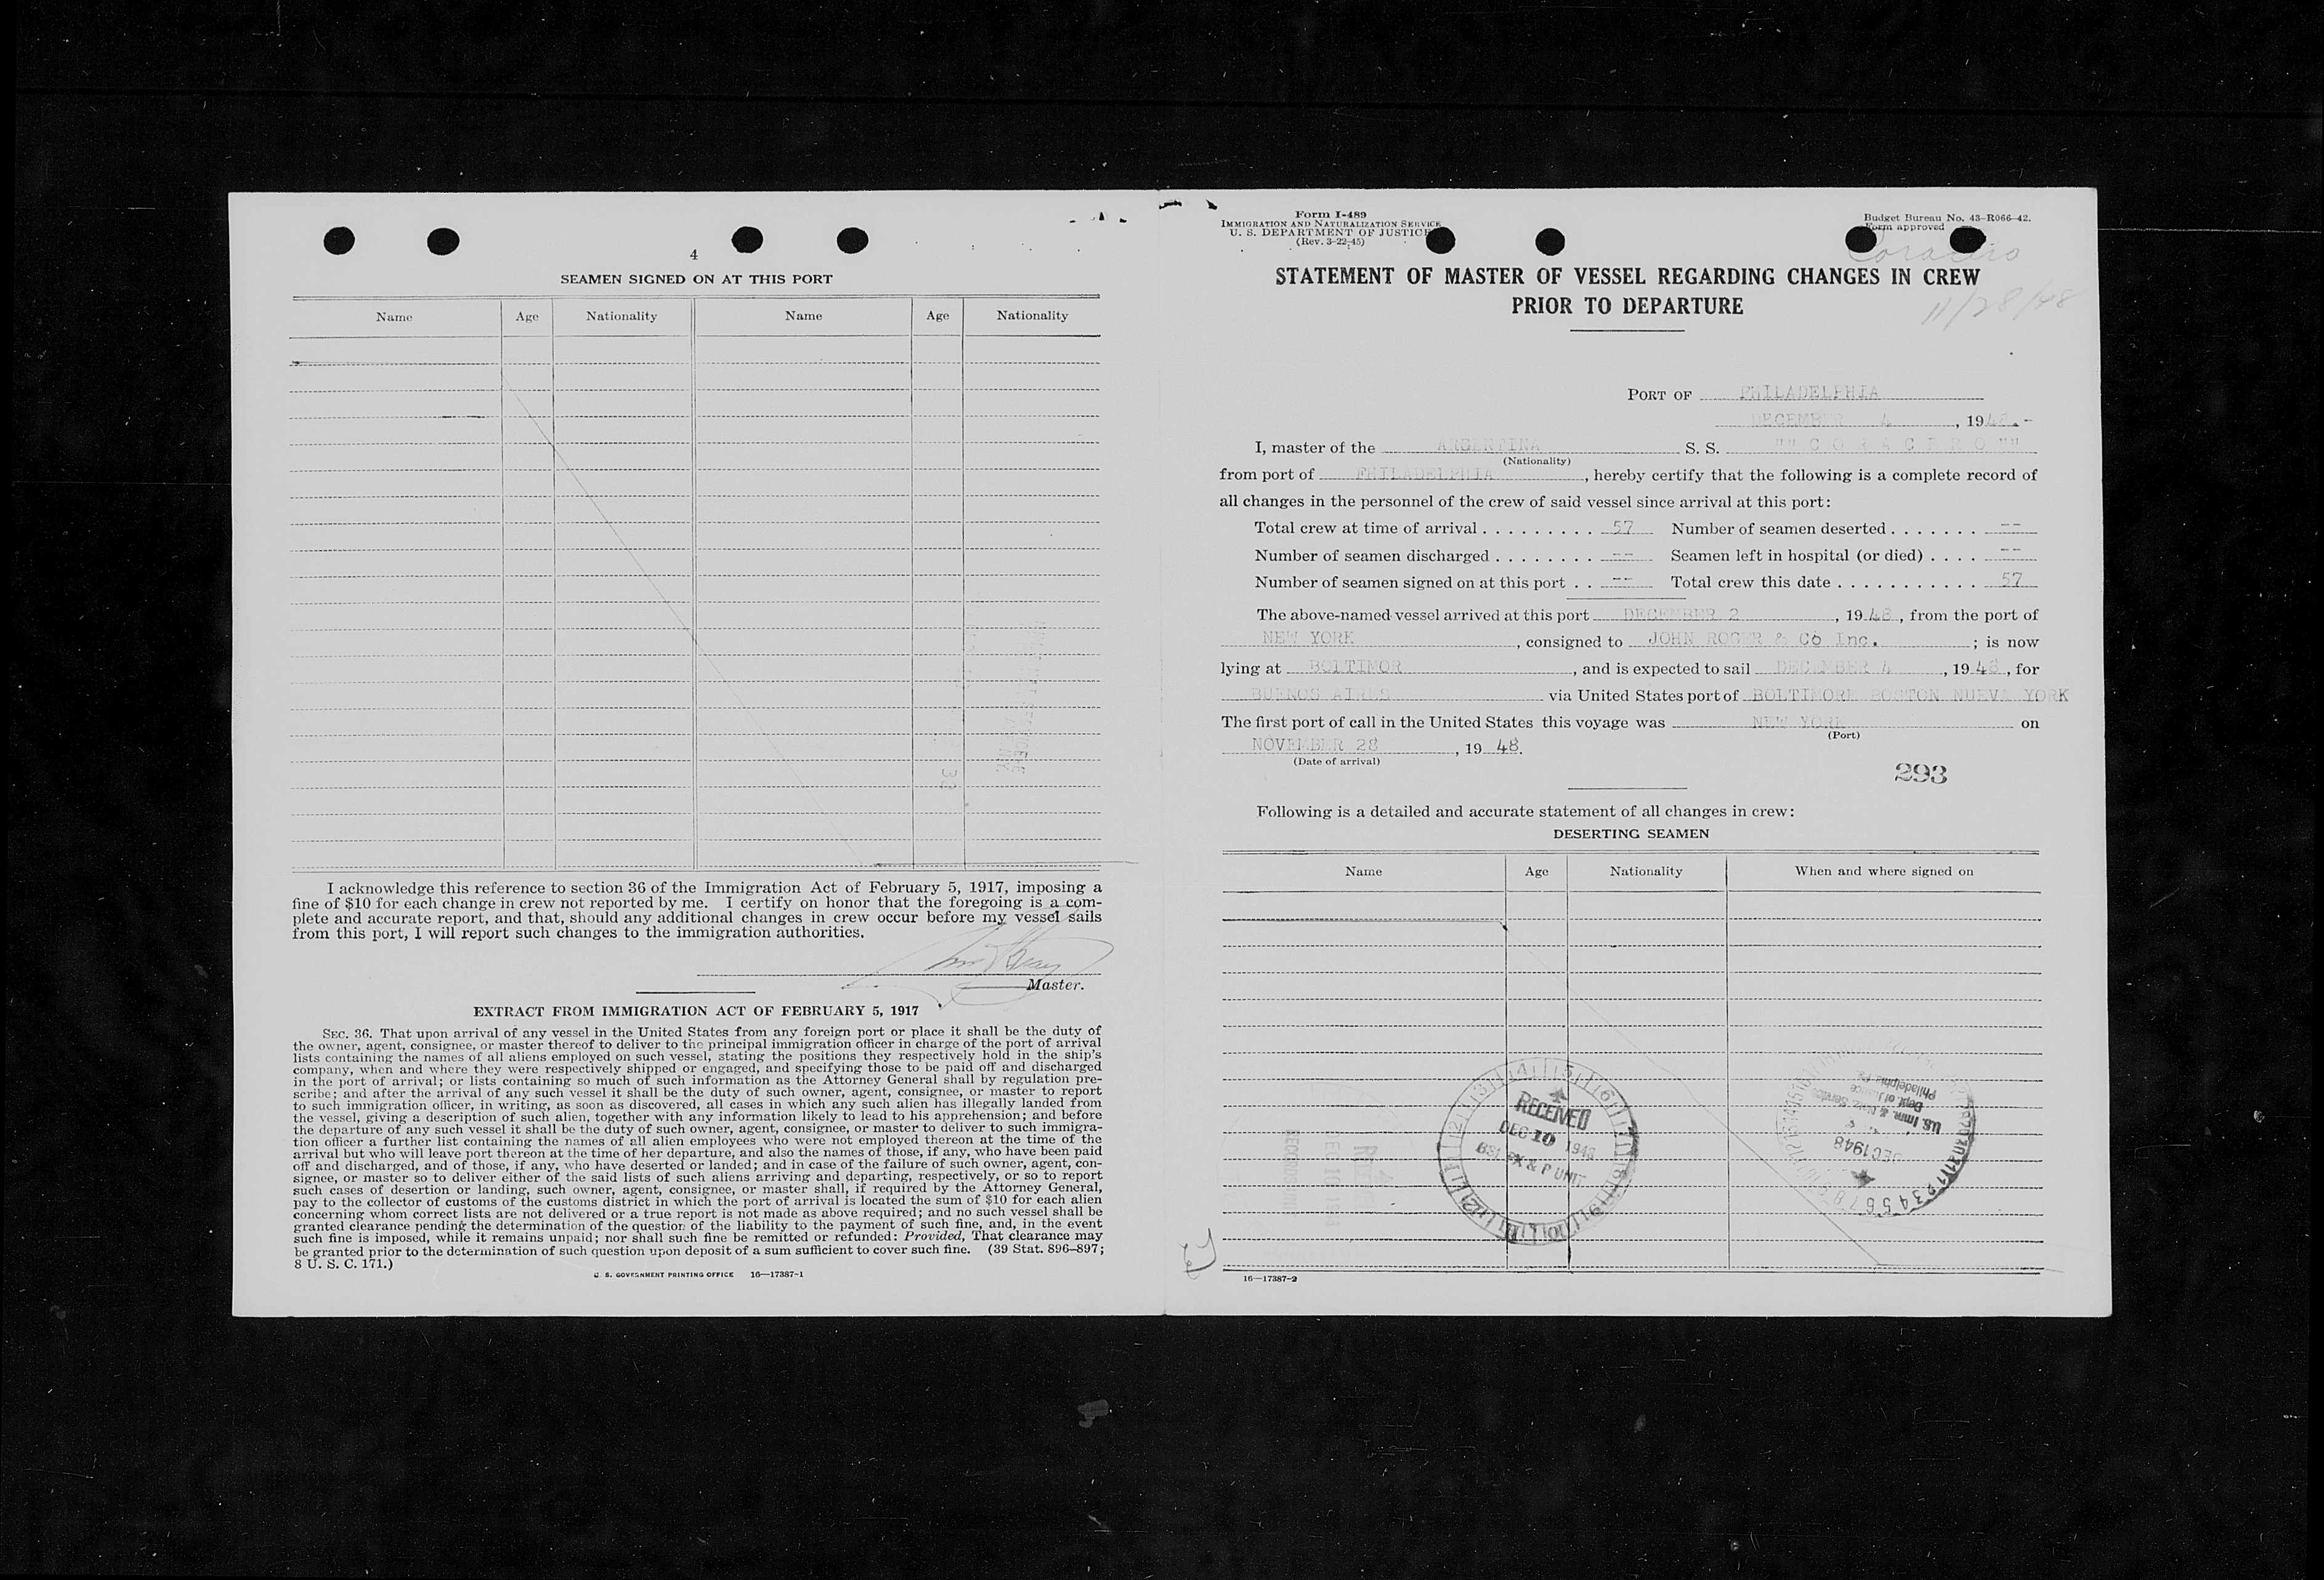 4
SEAMEN SIGNED ON AT THIS PORT
Name Age Nationality Name Age Nationality
I acknowledge this reference to section 36 of the Immigration Act of February 5, 1917, imposing a
fine of $10 for each change in crew not reported by me. I certify on honor that the foregoing is a com-
plete and accurate report, and that, should any additional changes in crew occur before my vessel sails
from this port, I will report such changes to the immigration authorities.
Master.
EXTRACT FROM IMMIGRATION ACT OF FEBRUARY 5, 1917
SEC. 36. That upon arrival of any vessel in the United States from any foreign port or place it shall be the duty of
the owner, agent, consignee, or master thereof to deliver to the principal immigration officer in charge of the port of arrival
lists containing the names of all aliens employed on such vessel, stating the positions they respectively hold in the ship's
company, when and where they were respectively shipped or engaged, and specifying those to be paid off and discharged
in the port of arrival; or lists containing so much of such information as the Attorney General shall by regulation pre-
scribe; and after the arrival of any such vessel it shall be the duty of such owner, agent, consignee, or master to report
to such immigration officer, in writing, as soon as discovered, all cases in which any such alien has illegally landed from
the vessel, giving a description of such alien, together with any information likely to lead to his apprehension; and before
the departure of any such vessel it shall be the duty of such owner, agent, consignee, or master to deliver to such immigra-
tion officer a further list containing the names of all alien employees who were not employed thereon at the time of the
arrival but who will leave port thereon at the time of her departure, and also the names of those, if any, who have been paid
off and discharged, and of those, if any, who have deserted or landed; and in case of the failure of such owner, agent, con-
signee, or master so to deliver either of the said lists of such aliens arriving and departing, respectively, or so to report
such cases of desertion or landing, such owner, agent, consignee, or master shall, if required by the Attorney General,
pay to the collector of customs of the customs district in which the port of arrival is located the sum of $10 for each alien
concerning whom correct lists are not delivered or a true report is not made as above required; and no such vessel shall be
granted clearance pending the determination of the question of the liability to the payment of such fine, and, in the event
such fine is imposed, while it remains unpaid; nor shall such fine be remitted or refunded: Provided, That clearance may
be granted prior to the determination of such question upon deposit of a sum sufficient to cover such fine. (39 Stat. 896–897;
8 U. S. C. 171.)
U. S. GOVERNMENT PRINTING OFFICE 16—17387-1
Form I-489
IMMIGRATION AND NATURALIZATION SERVICE
U. S. DEPARTMENT OF JUSTICE
(Rev. 3-22-45)
Budget Bureau No. 43-R066-42.
Form approved
Coracero
11/28/48
STATEMENT OF MASTER OF VESSEL REGARDING CHANGES IN CREW
PRIOR TO DEPARTURE
PORT OF PHILADELPHIA
DECEMBER 4, 1948.-
I, master of the ARGENTINA S. S. "" C O R A C E R O ""
(Nationality)
from port of PHILADELPHIA, hereby certify that the following is a complete record of
all changes in the personnel of the crew of said vessel since arrival at this port:
Total crew at time of arrival . . . . . . . . . . 57 Number of seamen deserted . . . . . . . --
Number of seamen discharged . . . . . . . . -- Seamen left in hospital (or died) . . . . --
Number of seamen signed on at this port . . -- Total crew this date . . . . . . . . . . . 57
The above-named vessel arrived at this port DECEMBER 2, 1948, from the port of
NEW YORK, consigned to JOHN ROGER & Co Inc. ; is now
lying at BOLTIMOR, and is expected to sail DECEMBER 4, 1948, for
BUENOS AIRES via United States port of BOLTIMORE BOSTON NUEVA YORK
The first port of call in the United States this voyage was NEW YORK on
(Port)
NOVEMBER 28, 19 48.
(Date of arrival)
293
Following is a detailed and accurate statement of all changes in crew:
DESERTING SEAMEN
Name Age Nationality When and where signed on
RECEIVED
DEC 10 1948
BSI EX & P UNIT
U.S. Imm. & Natz. Service
Dept. of Justice
Philadelphia Pa.
DEC 1948
16—17387-2